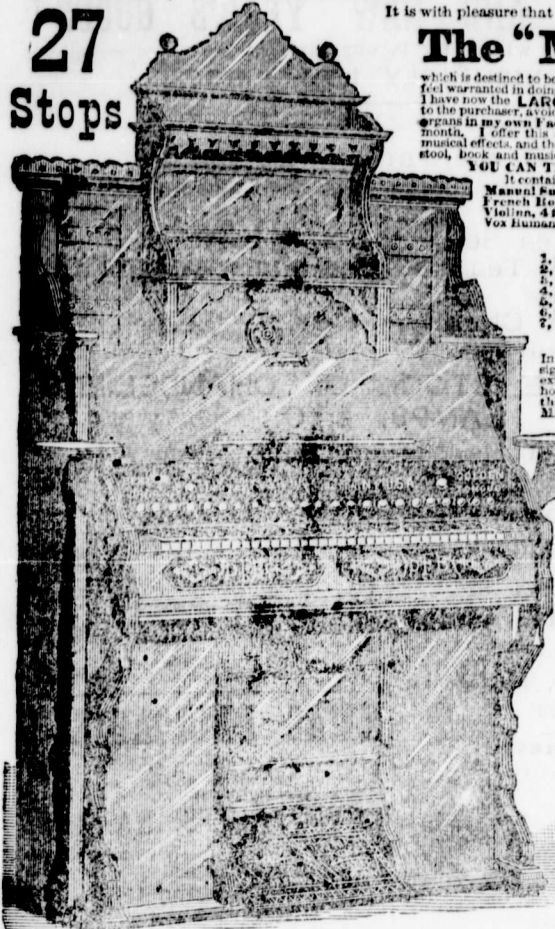 27
Stops
It is with pleasure that
The "
which is destined to be
feel warranted in doing
I have now the LARG
to the purchaser, avoid
organs in my own Fac
month. I offer this
musical effects, and th
stool, book and music
YOU CAN T
It contai
Manual Su
French Ho
Violina, 4
Vox Human
1.
2.
3.
4.
5.
6.
7.
In
sig
ex
ho
th